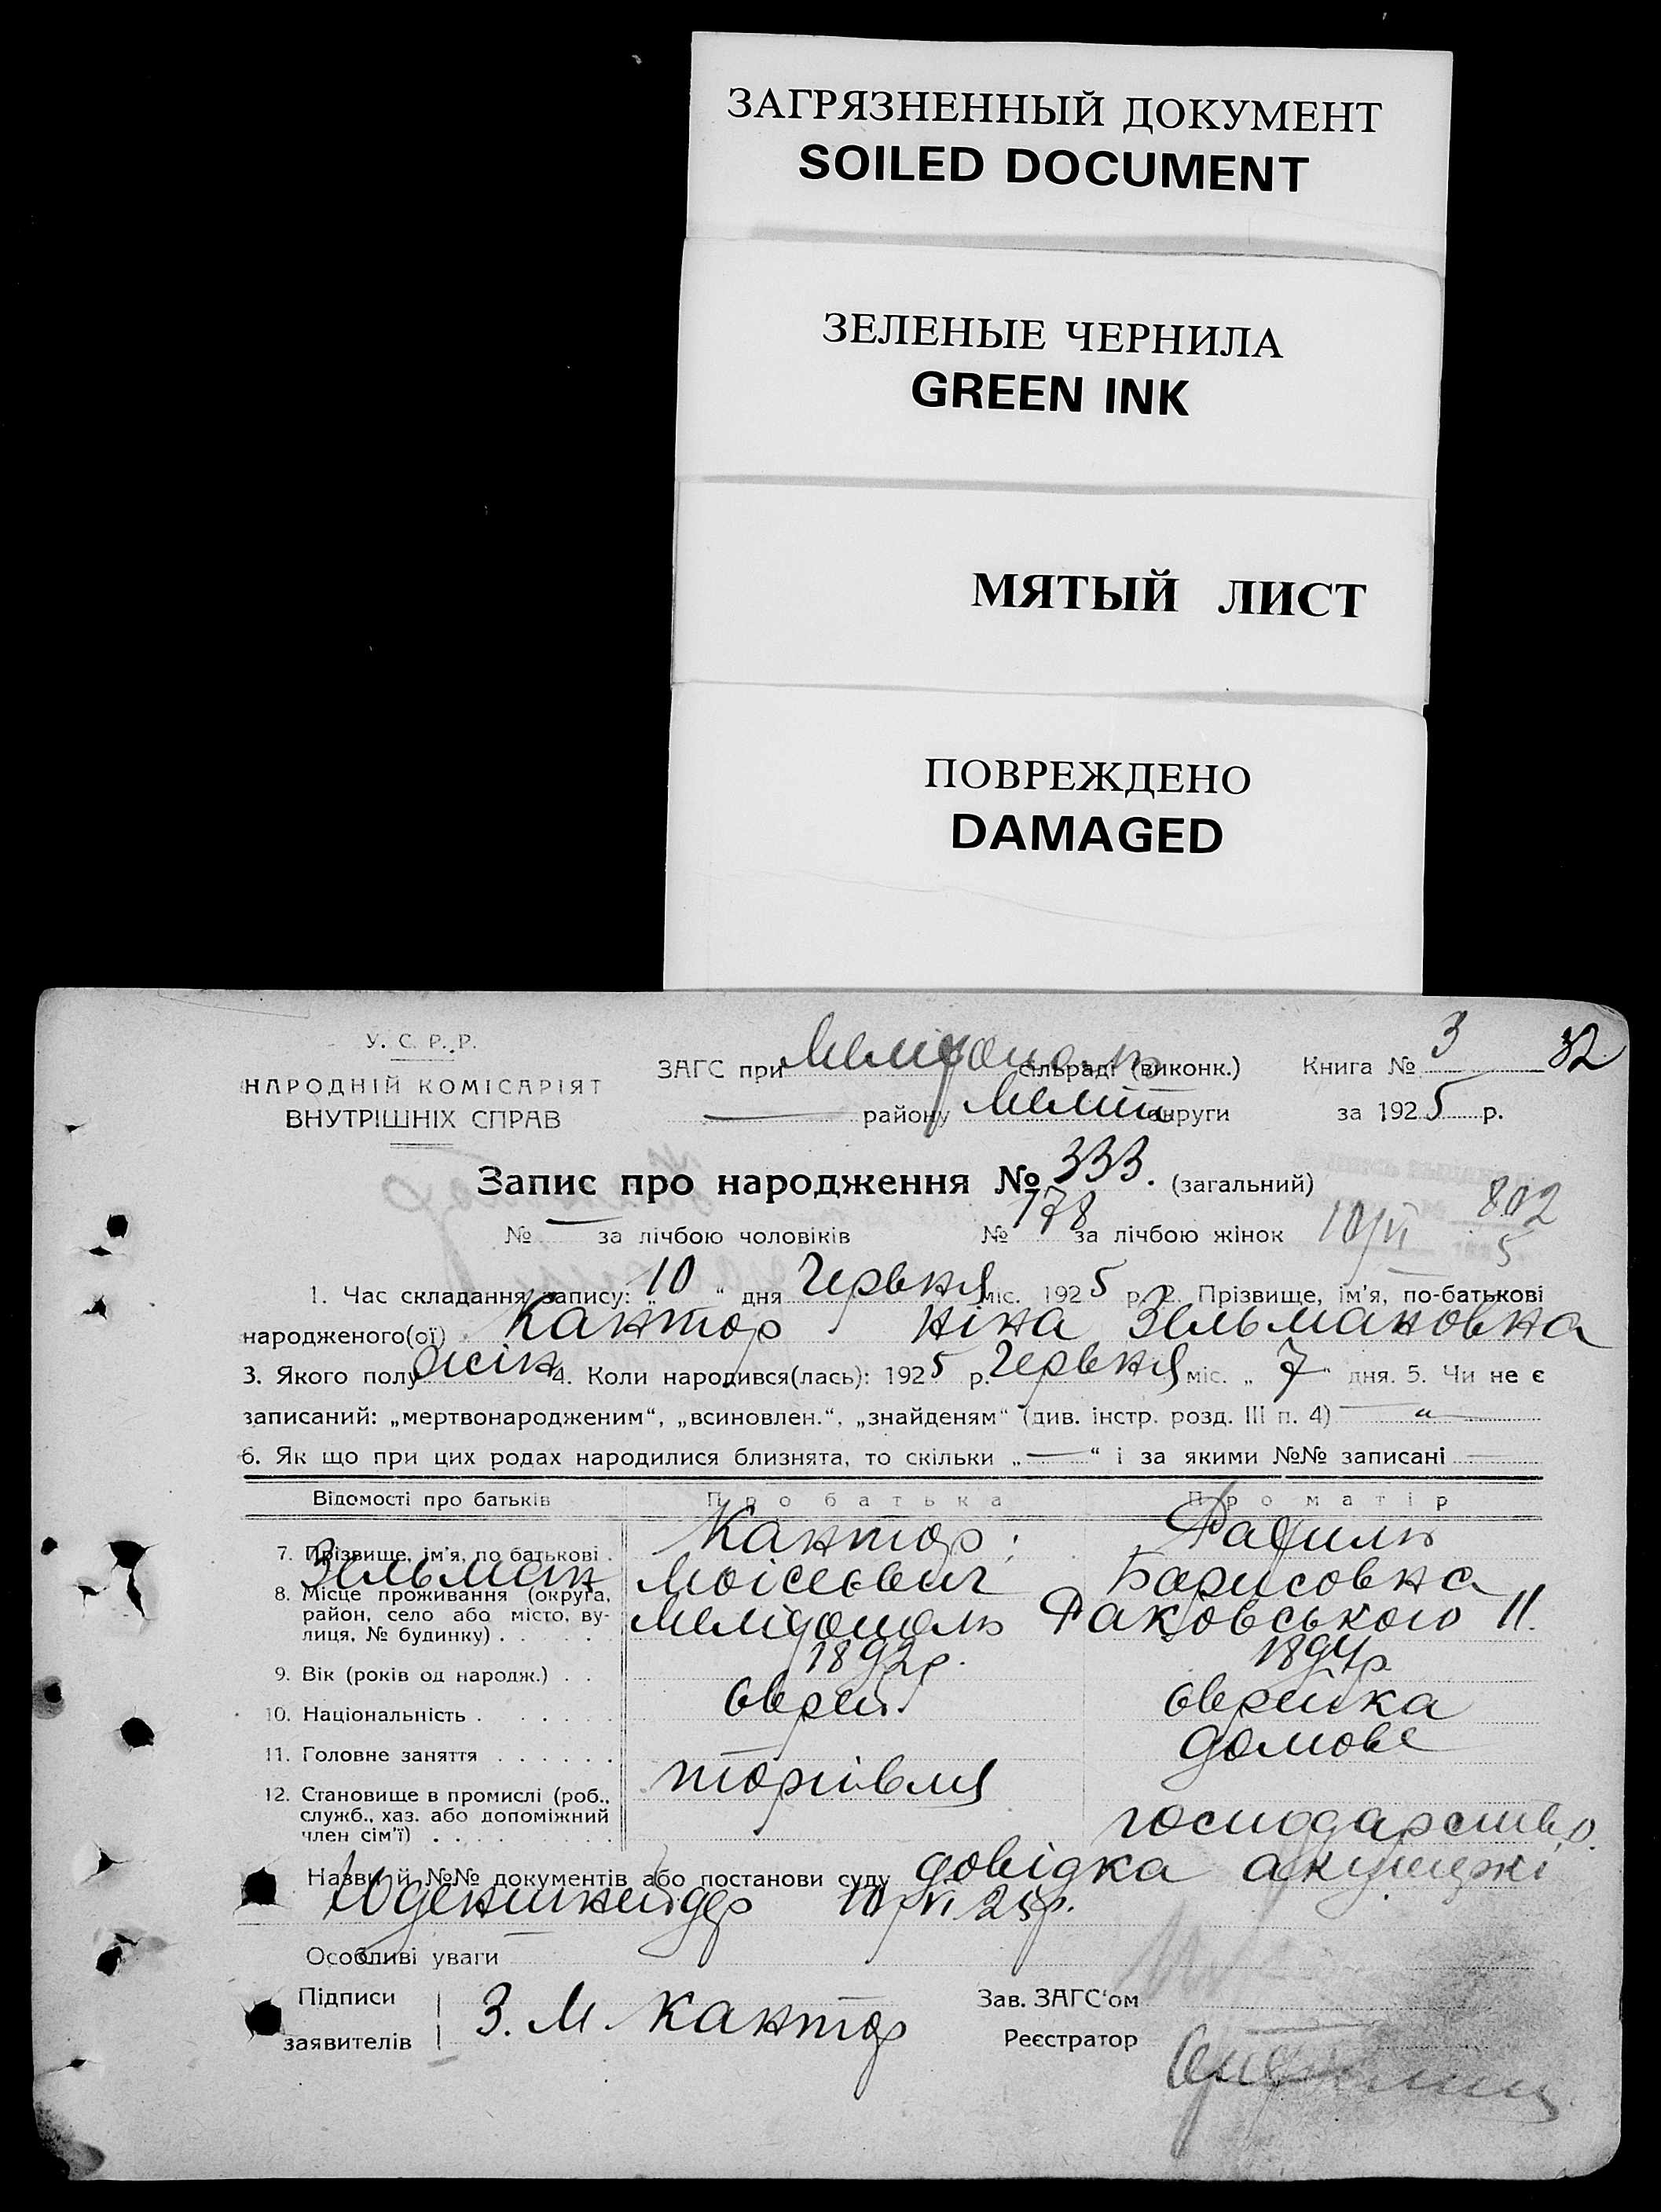 ЗАГРЯЗНЕННЫЙ ДОКУМЕНТ
SOILED DOCUMENT
ЗЕЛЕНЫЕ ЧЕРНИЛА
GREEN INK
МЯТЫЙ ЛИСТ
ПОВРЕЖДЕНО
DAMAGED
У. С. Р. Р.
НАРОДНІЙ КОМІСАРІЯТ
ВНУТРІШНІХ СПРАВ
ЗАГС при сільраді (виконк.) Книга № 3 32
району Меліт округи за 1925 р.
Запис про народження № 333. (загальний)
№ — за лічбою чоловіків № 178 за лічбою жінок 10/VI 802
5
1. Час складання запису: „10“ дня Червня міс. 1925 р. 2. Прізвище, ім'я, по-батькові
народженого(ої) Кантор Ніна Зельмановна
3. Якого полу жін 4. Коли народився(лась): 1925 р. Червня міс. „7“ дня. 5. Чи не є
записаний: „мертвонародженим“, „всиновлен.“, „знайденям“ (див. інстр. розд. III п. 4) — „ —
6. Як що при цих родах народилися близнята, то скільки „—“ і за якими №№ записані —
Відомості про батьків Про батька Про матір
7. Прізвище, ім'я, по батькові . Кантор
Зельман Моісеєвич Борисовна
8. Місце проживання (округа, район, село або місто, вулиця, № будинку) . Мелідополь Раковського 11.
9. Вік (років од народж.) . . 1892р. 1894р
10. Національність . єврей. єврейка
11. Головне заняття . домове
12. Становище в промислі (роб., служб., хаз. або допоміжний член сім'ї) . торгівля господарство.
Назви й №№ документів або постанови суду довідка акушерки
Юденшнейдер 10/VI 25р.
Особливі уваги
Підписи
заявителів З. М Кантор
Зав. ЗАГС'ом
Реєстратор